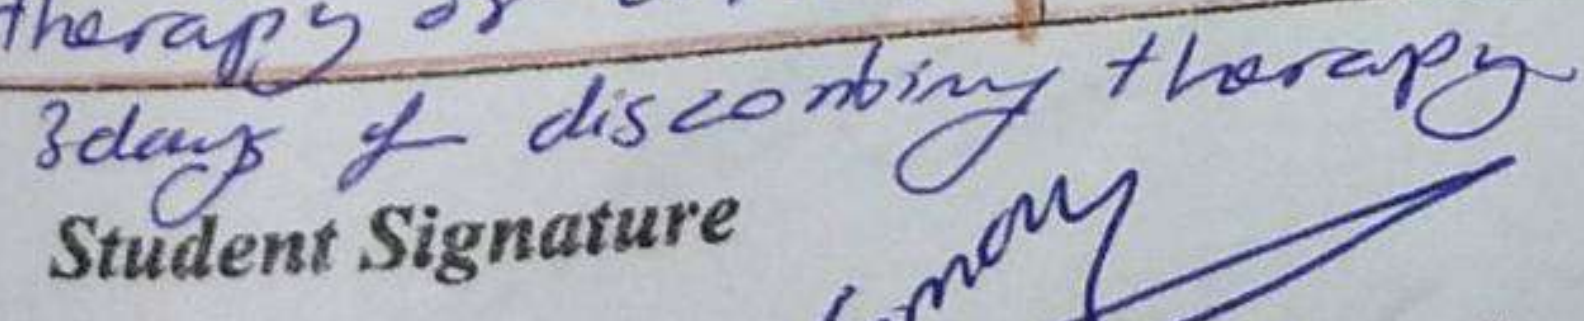 therapy or
3days of disconbiny therapy
Student Signature